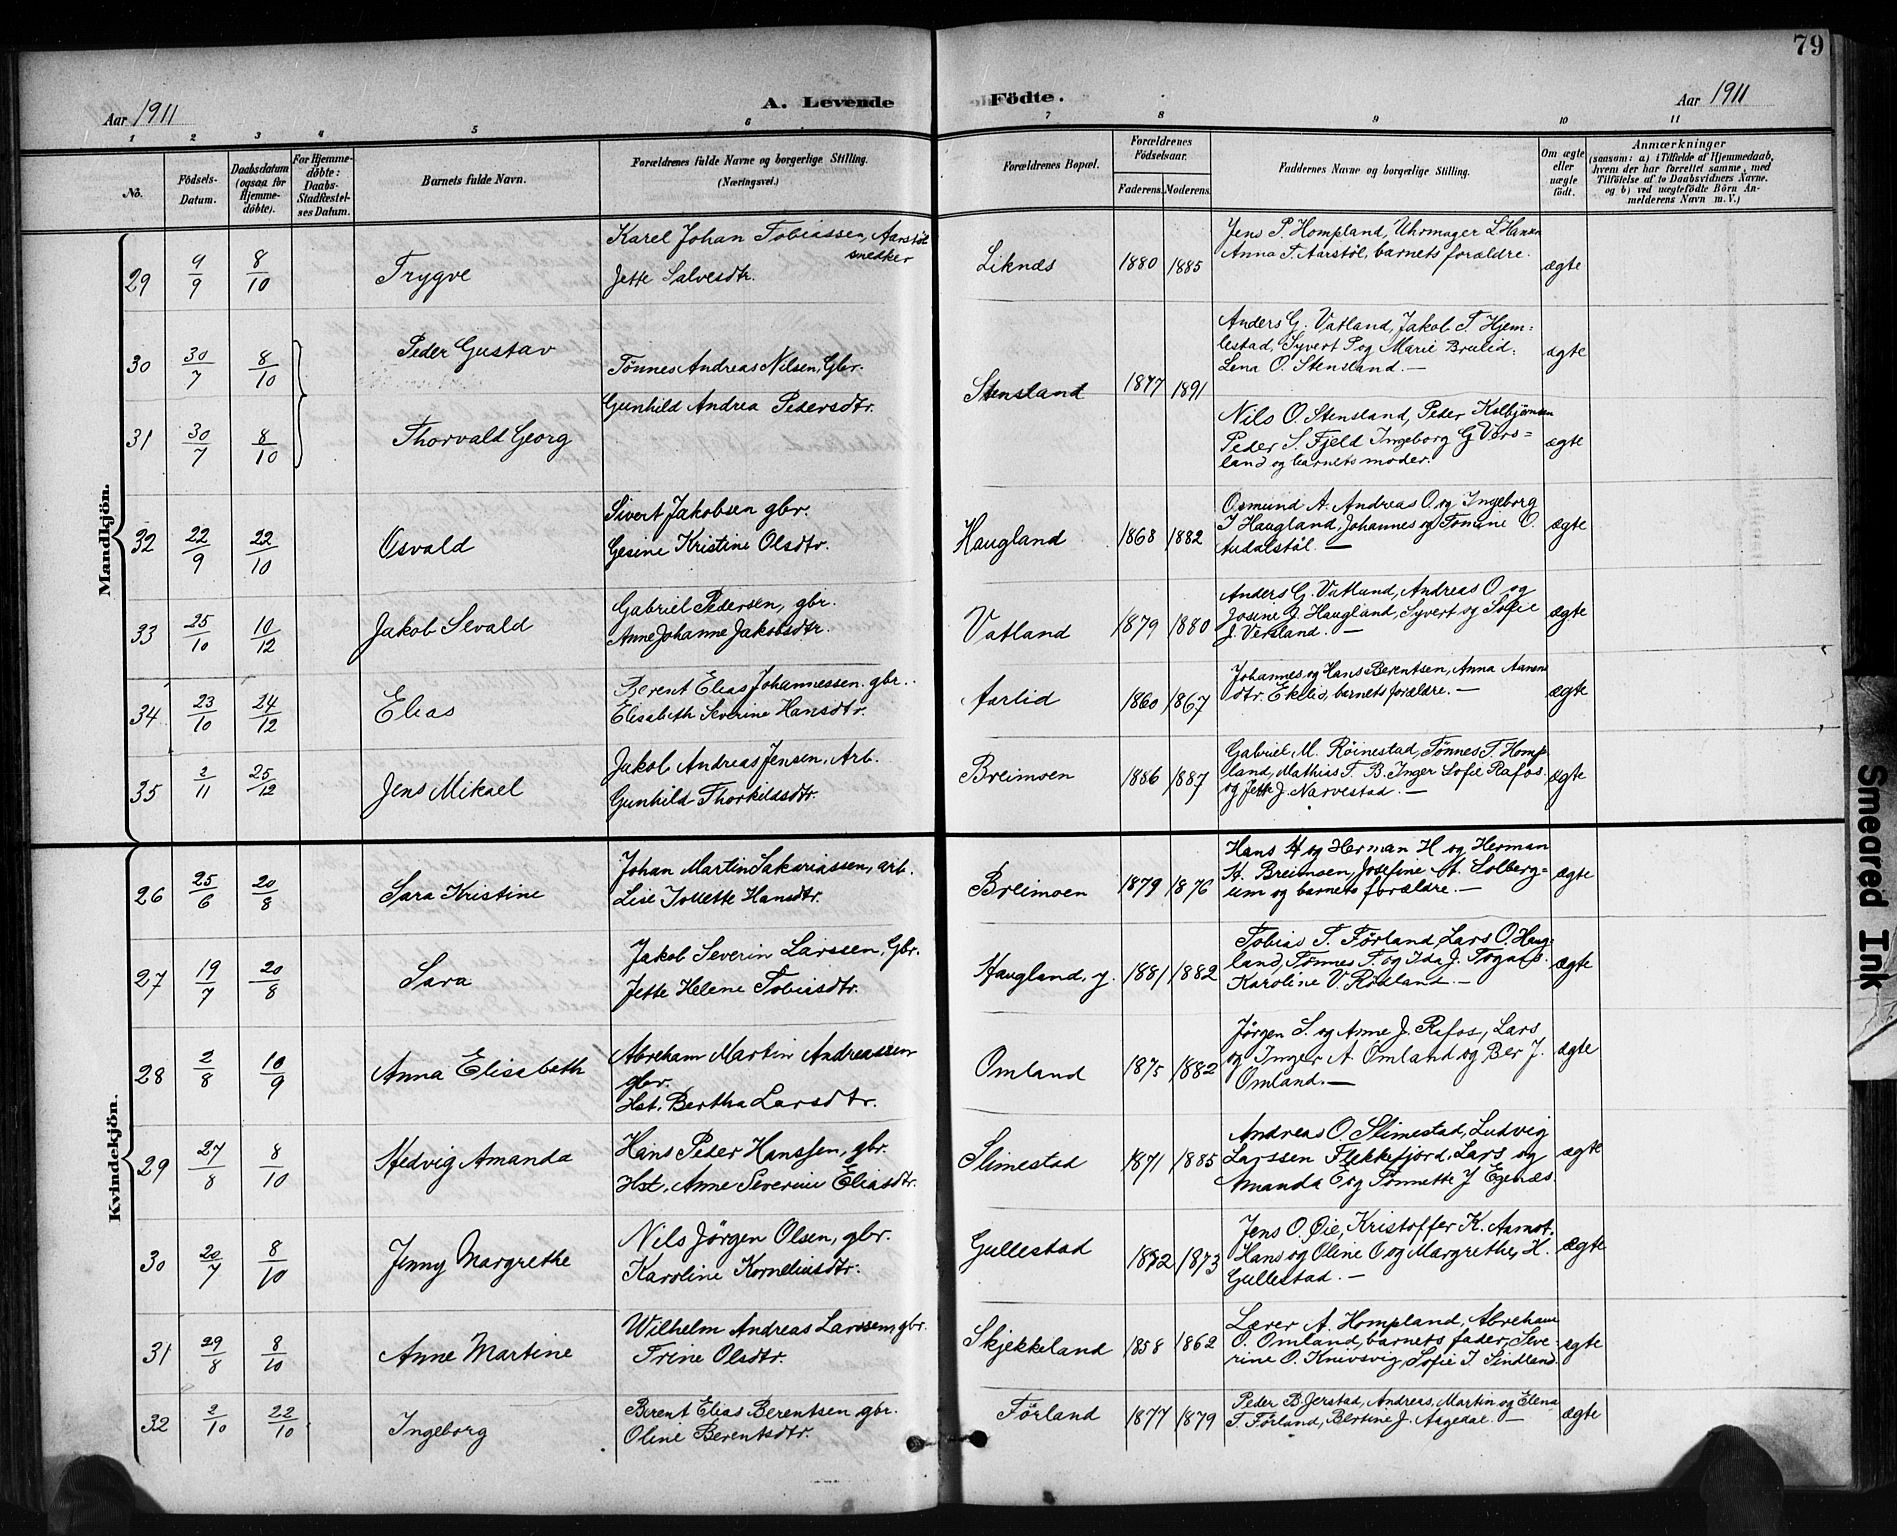 79
Aar 1911
A. Levende Födte.
Aar 1911
1 2 3 4 5 6 7 8 9 10 11
No.
Födsels-
Datum.
Daabsdatum
(ogsaa for
Hjemme-
döbte).
For Hjemme-
döbte:
Daabs-
Stadfæstel-
ses Datum.
Barnets fulde Navn.
Forældrenes fulde Navne og borgerlige Stilling.
(Næringsvei.)
Forældrenes Bopæl.
Forældrenes
Födselsaar.
Faderens. Moderens.
Faddernes Navne og borgerlige Stilling.
Om ægte
eller
uægte
födt.
Anmærkninger
(saasom: a) i Tilfælde af Hjemmedaab,
hvem der har forrettet samme, med
Tilföielse af to Daabsvidners Navne.
og b) ved uægtefödte Börn An-
melderens Navn m. V.)
Mandkjön.
29 9/9 8/10 Trygve
Karel Johan Tobiassen, Aarstøl
snedker
Jette Salvesdtr.
Liknæs 1880 1885
Jens P. Hompland, Uhrmager L Hansen
Anna T. Aarstøl, barnets forældre.
ægte
30 30/7 8/10 Peder Gustav
Tønnes Andreas Nilsen, Gbr.
Gunhild Andrea Pedersdtr.
Stensland 1877 1891
Anders G. Vatland, Jakob T. Hjem=
lestad, Syvert P og Marie Brulid.
Lena O. Stensland. —
ægte
31 30/7 8/10 Thorvald Georg
Nils O. Stensland, Peder Kolbjørnsen
Peder S. Fjeld Ingeborg G Vers=
land og barnets moder.
ægte
32 22/9 22/10 Osvald
Sivert Jakobsen gbr.
Gesine Kristine Olsdtr.
Haugland 1868 1882
Osmund A. Andreas O. og Ingeborg
J Haugland, Johannes og Tomine O.
Audalstøl. —
ægte
33 25/10 10/12 Jakob Sevald
Gabriel Pedersen, gbr.
Anne Johanne Jakobsdtr.
Vatland 1879 1880
Anders G. Vatland, Andreas O. og
Josine J. Haugland, Syvert og Sofie
J. Versland. —
ægte
34 23/10 24/12 Elias
Berent Elias Johannessen. gbr.
Elisabeth Severine Hansdtr.
Aarlid 1860 1867
Johannes og Hans Berentsen, Anna
dtr. Eklid, barnets forældre. —
ægte
35 2/11 25/12 Jens Mikael
Jakob Andreas Jensen, Arb.
Gunhild Thorkildsdtr.
Breimoen 1886 1887
Gabriel M. Røinestad, Tønnes T. Homp
land, Mathias T. B. Inger Sofie Rafos.
og Jette J. Narvestad. —
ægte
Kvindekjön.
26 25/6 20/8 Sara Kristine
Johan Martin Sakariassen, arb.
Lise Jollette Hansdtr.
Breimoen 1879 1876
Hans H og Herman H og Herman
H. Breimoen, Josefine A. Solberg=
um og barnets forældre. —
ægte
27 19/7 20/8 Sara
Jakob Severin Larssen, Gbr.
Jette Helene Tobiasdtr.
Haugland, y. 1881 1882
Tobias T. Førland, Lars O. Haug=
land, Tønnes T. og Ida J.
Karoline V. Rødland. —
ægte
28 2/8 10/9 Anna Elisabeth
Abreham Martin Andreassen
gbr.
Hst. Bertha Larsdtr.
Omland 1875 1882
Jørgen S. og Anne J. Rafos, Lars
og Inger A. Omland og Ber J.
Omland. —
ægte
29 27/8 8/10 Hedvig Amanda
Hans Peder Hanssen, gbr.
Hst. Anne Severine Eliasdtr.
Slimestad 1871 1885
Andreas O. Slimestad, Ludvig
Larssen Flekkefjord, Lars og
Amanda E og Tønnette J Egenæs.
ægte
30 20/7 8/10 Jenny Margrethe
Nils Jörgen Olsen, gbr.
Karoline Korneliusdtr.
Gullestad 1872 1873
Jens O. Øie, Kristoffer K. Aamot.
Hans og Oline O og Margrethe, H.
Gullestad. —
ægte
31 29/8 8/10 Anne Martine
Wilhelm Andreas Larssen, gbr.
Trine Olsdtr.
Skjekkeland 1858 1862
Lærer A. Hompland, Abreham
O. Omland, barnets fader, Seve-
rine O. Knivsvig, Sofie T. Sindland.
ægte
32 2/10 22/10 Ingeborg
Berent Elias Berentsen, gbr.
Oline Berentsdtr.
Førland 1877 1879
Peder B. Jerstad, Andreas, Martin og Elena
T. Førland, Bertine J. Aagedal. —
ægte
Smeared Ink